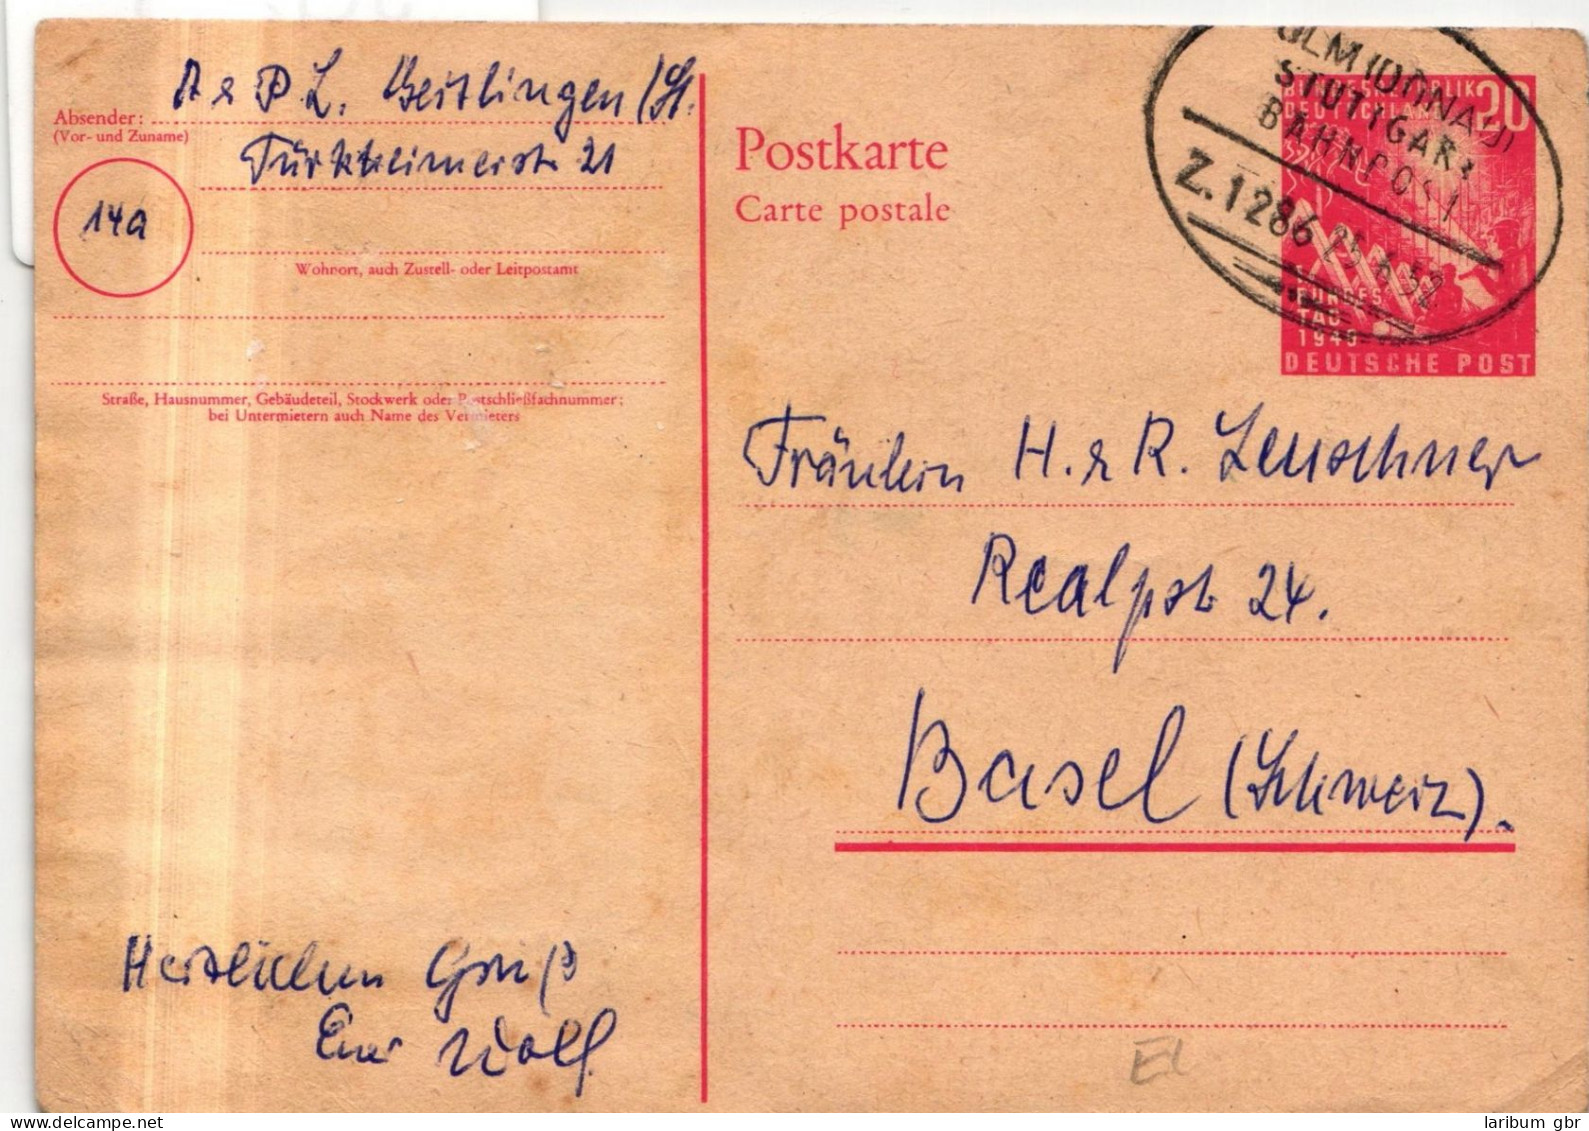 A & P L. Geislingen/St.
Absender:
(Vor- und Zuname)
Türkheimerstr 21
14a
Wohnort, auch Zustell- oder Leitpostamt
Straße, Hausnummer, Gebäudeteil, Stockwerk oder Postschließfachnummer;
bei Untermietern auch Name des Vermieters
Herzlichen Gruß
Euer Wolf.
Postkarte
Carte postale
ULM (DONAU)
STUTTGART
BAHNPOST
Z. 1286 25.4.52
BUNDESREPUBLIK 20
DEUTSCHLAND
BUNDES
TAG
1949
DEUTSCHE POST
Fräulein H. & R. Leuschner
Realpstr 24.
Basel (Schweiz).
EL
laribum gbr